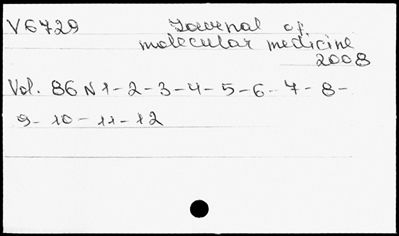 V6729 Journal of
molecular medicine
2008
Vol. 86 N 1-2-3-4-5-6-7-8-
9-10-11-12